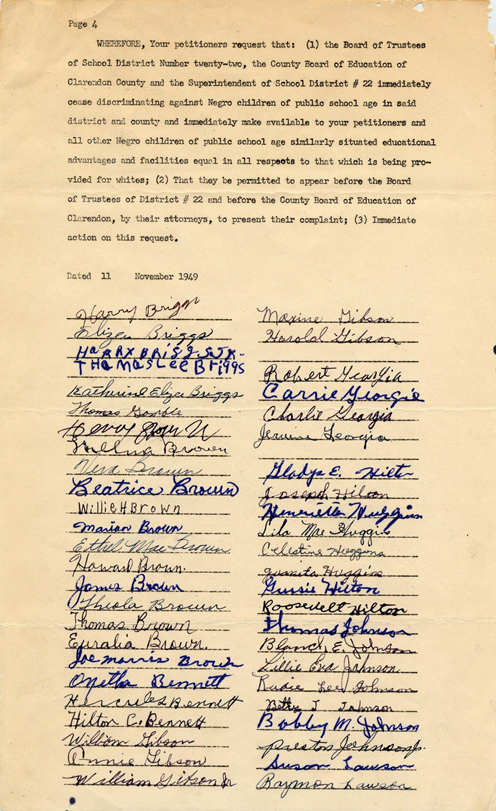 Page 4
WHEREFORE, Your petitioners request that: (1) the Board of Trustees
of School District Number twenty-two, the County Board of Education of
Clarendon County and the Superintendent of School District # 22 immediately
cease discriminating against Negro children of public school age in said
district and county and immediately make available to your petitioners and
all other Negro children of public school age similarly situated educational
advantages and facilities equal in all respects to that which is being pro-
vided for whites; (2) That they be permitted to appear before the Board
of Trustees of District # 22 and before the County Board of Education of
Clarendon, by their attorneys, to present their complaint; (3) Immediate
action on this request.
Dated 11 November 1949
Harry Briggs
Eliza Briggs
Harry Briggs Jr.
Thomas Lee Briggs
Katherine Eliza Briggs
Thomas Gamble
Henry Brown
Thelma Brown
Vera Brown
Beatrice Brown
Willie H Brown
Marian Brown
Ethel Mae Brown
Howard Brown.
James Brown
Theola Brown
Thomas Brown
Euralia Brown.
Joe morris Brown
Onetha Bennett
Hercules Bennett
Hilton C. Bennett
William Gibson
Annie Gibson
William Gibson Jr
Maxine Gibson
Harold Gibson
Robert Georgia
Carrie Georgia
Charlie Georgia
Jervine Georgia
Gladys E. Hilton
Joseph Hilton
Henrietta Huggins
Lila Mae Huggins
Celestine Huggins
Juanita Huggins
Gussie Hilton
Roosevelt Hilton
Thomas Johnson
Blanch E. Johnson
Lillie Eva Johnson
Rubie Lee Johnson
Betty J Johnson
Bobby M. Johnson
Preston Johnson Jr.
Susan Lawson
Raymon Lawson